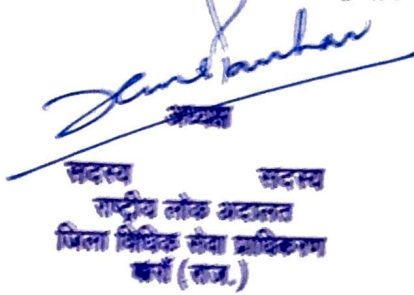 अध्यक्ष
सदस्य सदस्य
राष्ट्रीय लोक अदालत
जिला विधिक सेवा प्राधिकरण
(राज.)